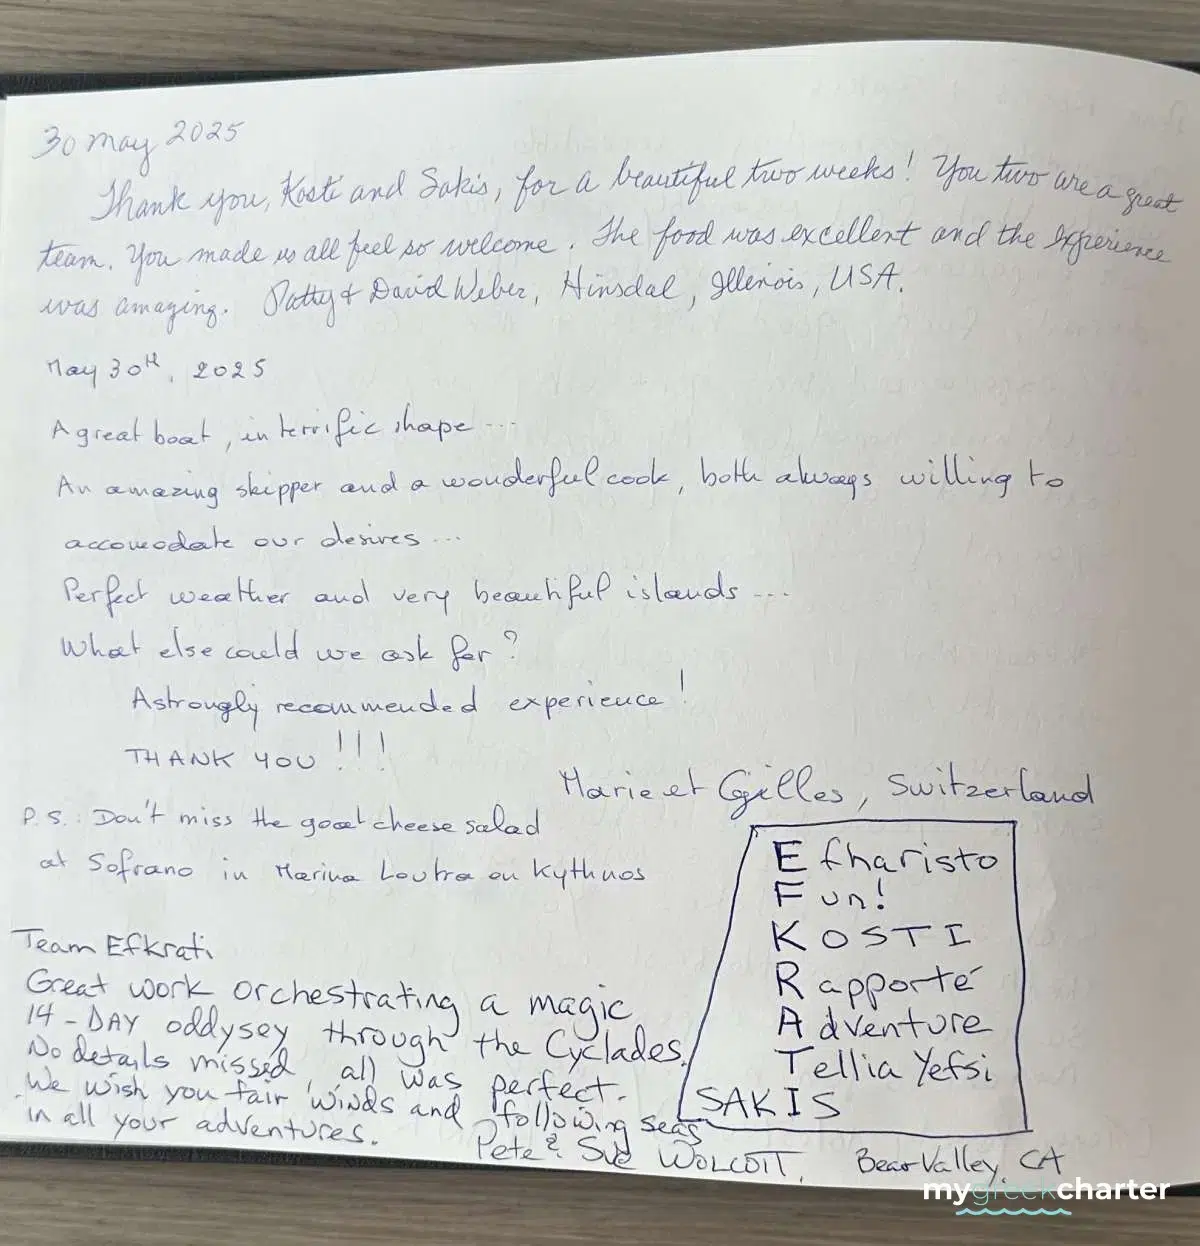 30 May 2025
Thank you, Kosti and Sakis, for a beautiful two weeks! You two are a great
team. You made us all feel so welcome. The food was excellent and the experience
was amazing. Patty & David Weber, Hinsdal, Illinois, USA.
May 30th, 2025
A great boat, in terrific shape ...
An amazing skipper and a wonderful cook, both always willing to
accomodate our desires ...
Perfect weather and very beautiful islands ...
What else could we ask for?
A strongly recommended experience!
THANK YOU!!!
Marie et Gilles, Switzerland
P.S.: Don't miss the goat cheese salad
at Sofrano in Marina Loutra on Kythnos
Team Efkrati
Great work orchestrating a magic
14-DAY oddysey through the Cyclades.
No details missed, all was perfect.
We wish you fair winds and following seas
in all your adventures.
Pete & Sue WOLCOTT, Bear Valley, CA
Efharisto
Fun!
KOSTI
Rapporté
Adventure
Tellia Yefsi
SAKIS
mygreekcharter